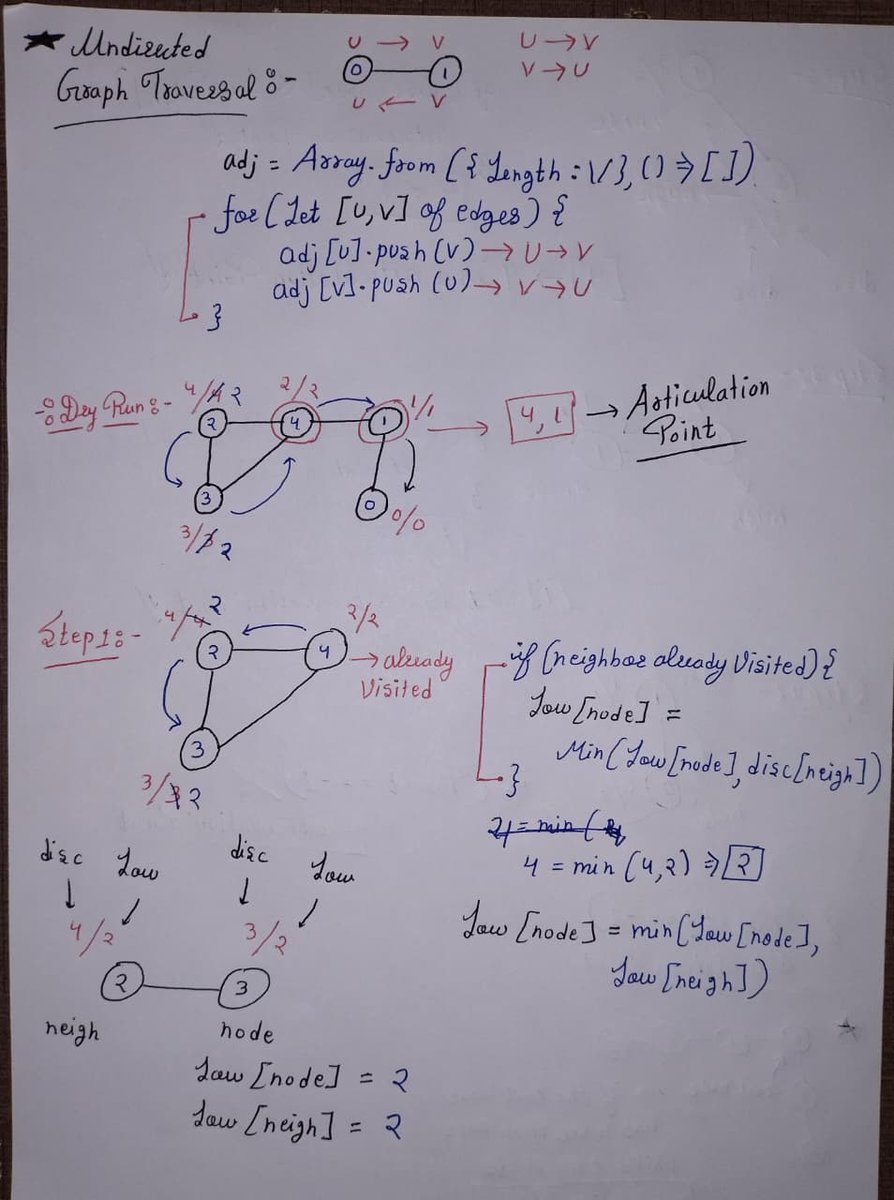 ★ Undirected
Graph Traversal :-
U → V
0 1
U ← V
U → V
V → U
adj = Array.from({Length : V}, () => [])
for(Let [U,V] of edges) {
adj[U].push(V) → U → V
adj[V].push(U) → V → U
}
Dry Run :-
4/4 2
2/2
1/1
2 4 1
3 0
3/3 2
0/0
→ 4, 1 → Articulation
Point
Step 1 :-
4/4 2
2/2
2 4
→ already
Visited
3
3/3 2
if (neighbor already Visited) {
Low [node] =
Min(Low[node], disc[neigh])
}
4 = min (4,2) => 2
Low [node] = min(Low[node],
Low[neigh])
disc Low disc Low
4/2 3/2
2 3
neigh node
Low [node] = 2
Low [neigh] = 2